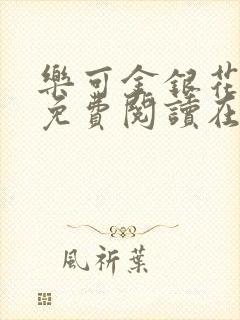 樂可金銀花
免費閱讀在
風祈葉